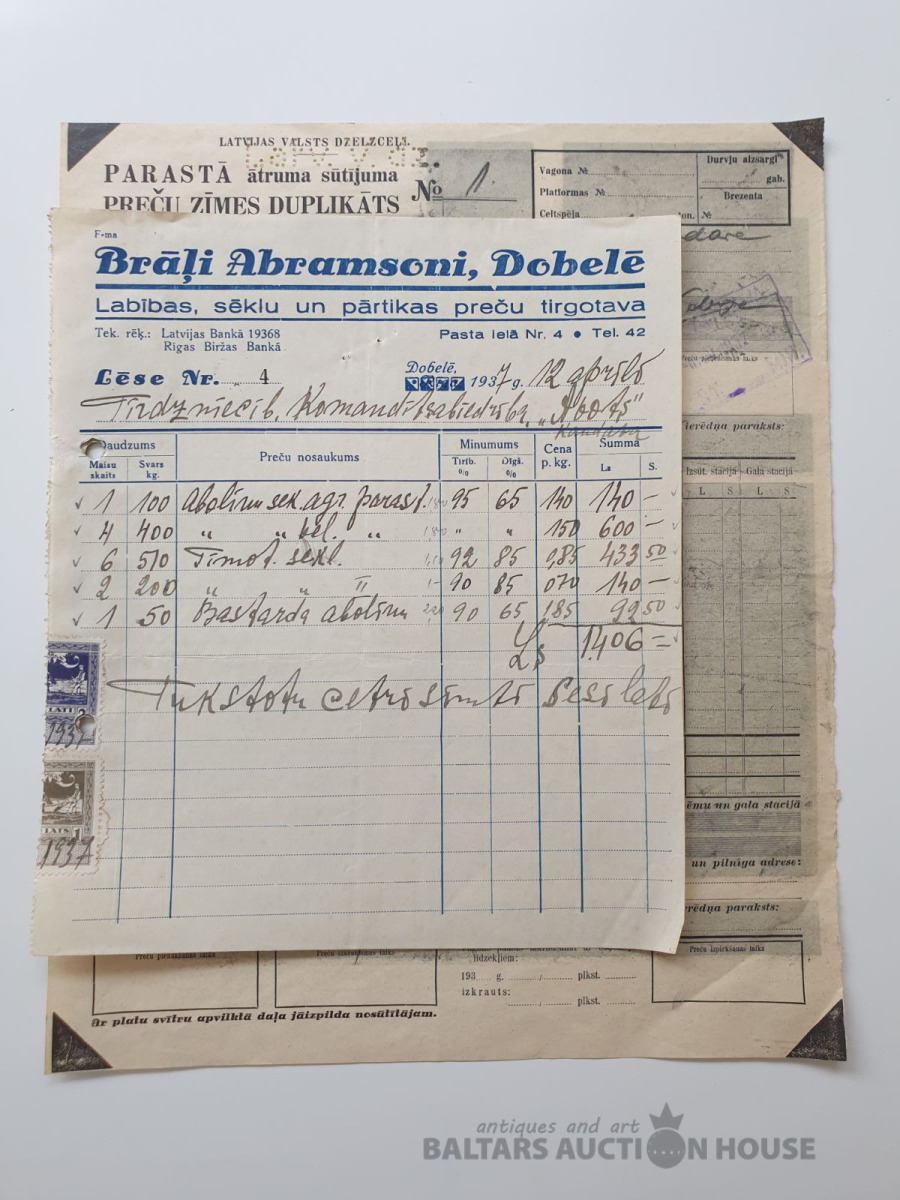 LATVIJAS VALSTS DZELZCEĻI.
PARASTĀ ātruma sūtījuma
PREČU ZĪMES DUPLIKĀTS
№ 1.
Vagona №
Platformas №
Celtspēja ton.
Durvju aizsargi
gab.
Brezenta
№
F-ma
Brāļi Abramsoni, Dobelē
Labības, sēklu un pārtikas preču tirgotava
Tek. rēķ.: Latvijas Bankā 19368
Rīgas Biržas Bankā
Pasta ielā Nr. 4 • Tel. 42
Dobelē,
Lēse Nr. 4
1937 g. 12 aprīlī
Tirdzniecib. Komandītsabiedrība, „Noots"
Daudzums
Maisu skaits
Svars kg.
Preču nosaukums
Minumums
Tīrīb. %
Dīgš. %
Cena p. kg.
Summa
Ls
S.
1 100 Aboliņu sek. agr. parast. 95 65 140 140 —
4 400 „ „ bel. „ „ „ 150 600 —
6 510 Timot. sekl. 92 85 0,85 433 50
2 200 „ „ II 90 85 070 140 —
1 50 Bastarda aboliņu 90 65 1,85 92 50
Ls 1406 =
Tukstotu cetrisimti sesi lati
LATI 2
1937
LATS 1
1937
ierēdņa paraksts:
Izsūt. stacijā
Gala stacijā
L S L S
ēmu un gala stacijā
un pilnīga adrese:
ierēdņa paraksts:
Preču pieņemšanas laiks
Preču izkraušanas laiks
līdzekļiem:
193 g. / plkst.
izkrauts:
/ plkst.
Preču izpirkšanas laiks
Ar platu svītru apvilktā daļa jāizpilda nosūtītājam.
antiques and art
BALTARS AUCTION HOUSE